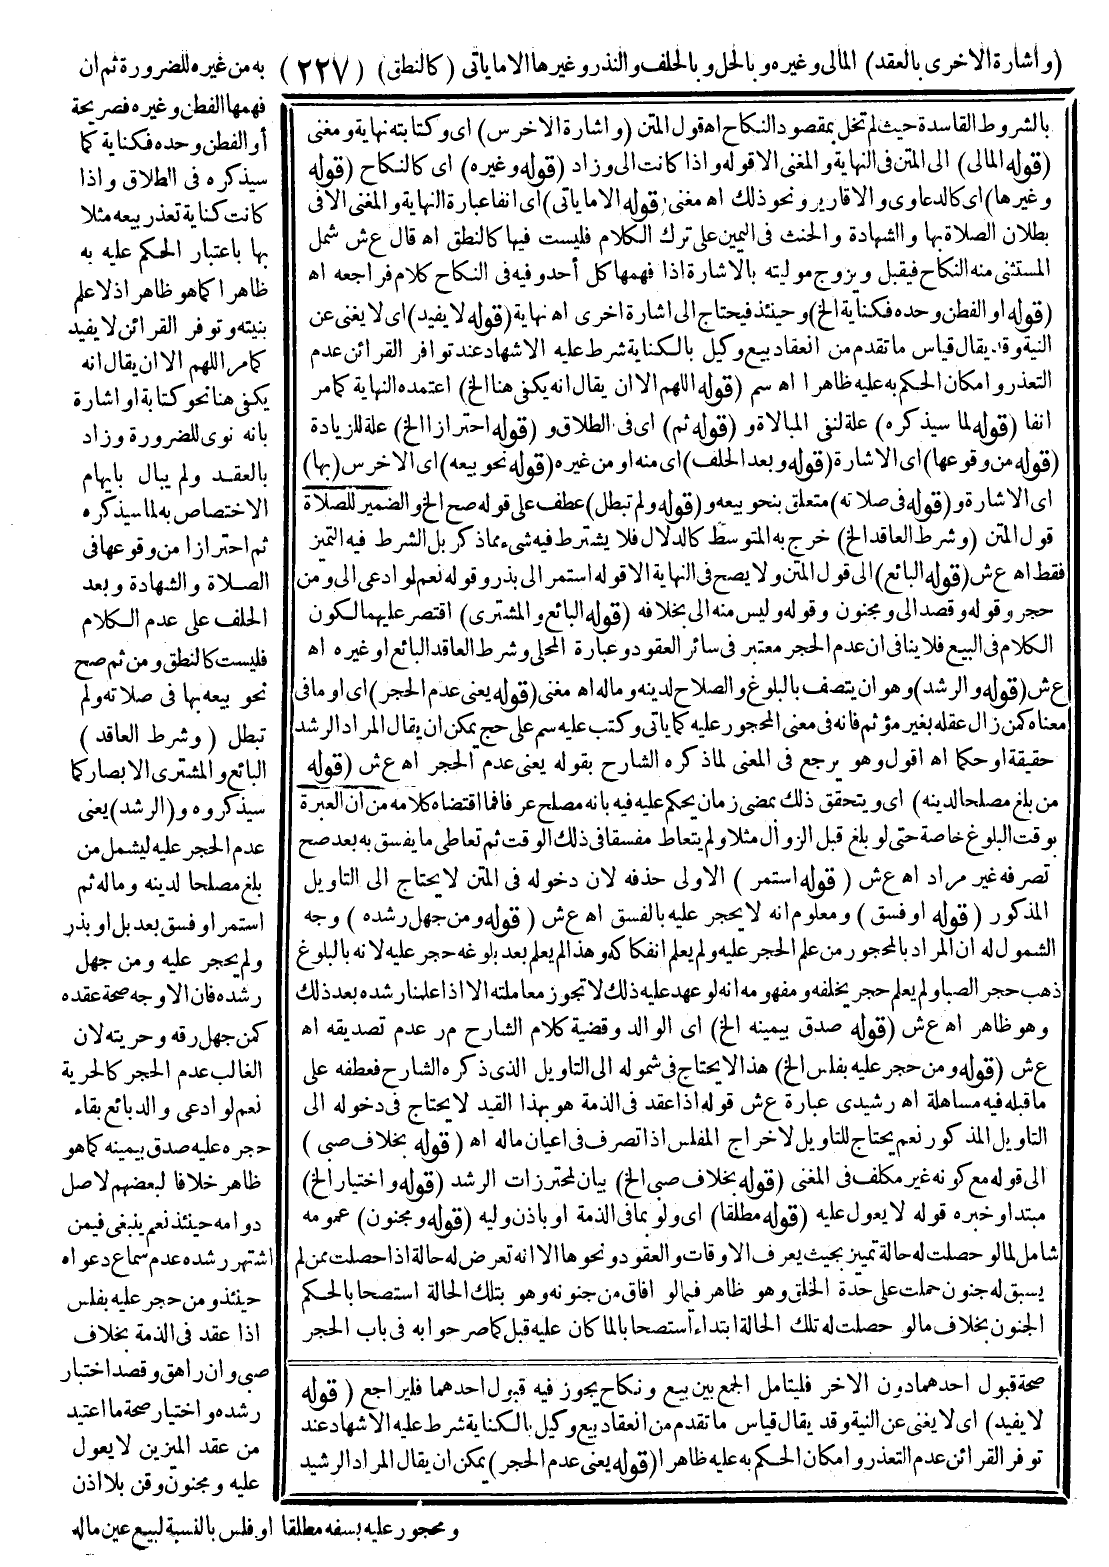 (واشارة الاخرى بالعقد) المالى وغيره وبالحل وبالحلف والنذر وغيرها الا ما ياتى (كالنطق) (٢٢٧)
به من غيره للضرورة ثم ان
فهمها الفطن وغيره فصريحة
أو الفطن وحده فكناية كما
سيذكره فى الطلاق واذا
كانت كناية تعذر بيعه مثلا
بها باعتبار الحكم عليه به
ظاهرا كما هو ظاهر اذلا علم
بنيته وتوفر القرائن لا يفيد
كما مر اللهم الا ان يقال انه
يكفى هنا نحو كتابة او اشارة
بانه نوى للضرورة وزاد
بالعقد ولم يبال بايهام
الاختصاص به لما سيذكره
ثم احترازا من وقوعها فى
الصلاة والشهادة وبعد
الحلف على عدم الكلام
فليست كالنطق ومن ثم صح
نحو بيعه بها فى صلاته ولم
تبطل (وشرط العاقد)
البائع والمشترى الابصار كما
سيذكروه و(الرشد) يعنى
عدم الحجر عليه ليشمل من
بلغ مصلحا لدينه وماله ثم
استمر او فسق بعد بل او بذر
ولم يحجر عليه ومن جهل
رشده فان الاوجه صحة عقده
كمن جهل رقه وحريته لان
الغالب عدم الحجر كالحرية
نعم لو ادعى والد بائع بقاء
حجره عليه صدق بيمينه كما هو
ظاهر خلافا لبعضهم لاصل
دوامه حينئذ نعم ينبغى فيمن
اشتهر رشده عدم سماع دعواه
حينئذ ومن حجر عليه بفلس
اذا عقد فى الذمة بخلاف
صبى وان راهق وقصد اختبار
رشده واختيار صحة ما اعتيد
من عقد المميزين لا يعول
عليه ومجنون وقن بلا اذن
ومحجور عليه بسفه مطلقا او فلس بالنسبة لبيع عين ماله
بالشروط الفاسدة حيث لم تخل بمقصود النكاح اه قول المتن (واشارة الاخرس) اى وكتابته نهاية ومغنى
(قوله المالى) الى المتن فى النهاية والمغنى الا قوله واذا كانت الى وزاد (قوله وغيره) اى كالنكاح (قوله
وغيرها) اى كالدعاوى والاقارير ونحو ذلك اه مغنى (قوله الا ما ياتى) اى انفا عبارة النهاية والمغنى الا فى
بطلان الصلاة بها والشهادة والحنث فى اليمين على ترك الكلام فليست فيها كالنطق اه قال ع ش شمل
المستثنى منه النكاح فيقبل ويزوج موليته بالاشارة اذا فهمها كل أحد وفيه فى النكاح كلام فراجعه اه
(قوله او الفطن وحده فكناية الخ) وحينئذ فيحتاج الى اشارة اخرى اه نهاية (قوله لا يفيد) اى لا يغنى عن
النية وقد يقال قياس ما تقدم من انعقاد بيع وكيل بالكناية شرط عليه الاشهاد عند توافر القرائن عدم
التعذر وامكان الحكم به عليه ظاهرا اه سم (قوله اللهم الا ان يقال انه يكفى هنا الخ) اعتمده النهاية كما مر
انفا (قوله لما سيذكره) علة لنفى المبالاة و (قوله ثم) اى فى الطلاق و (قوله احترازا الخ) علة للزيادة
(قوله من وقوعها) اى الاشارة (قوله وبعد الحلف) اى منه او من غيره (قوله نحو بيعه) اى الاخرس (بها)
اى الاشارة و (قوله فى صلاته) متعلق بنحو بيعه و (قوله ولم تبطل) عطف على قوله صح الخ والضمير للصلاة
قول المتن (وشرط العاقد الخ) خرج به المتوسط كالدلال فلا يشترط فيه شىء مما ذكر بل الشرط فيه التميز
فقط اه ع ش (قوله البائع) الى قول المتن ولا يصح فى النهاية الا قوله استمر الى بذر وقوله نعم لو ادعى الى ومن
حجر وقوله وقصد الى ومجنون وقوله وليس منه الى بخلافه (قوله البائع والمشترى) اقتصر عليهما لكون
الكلام فى البيع فلا ينافى ان عدم الحجر معتبر فى سائر العقود وعبارة المحلى وشرط العاقد البائع او غيره اه
ع ش (قوله والرشد) وهو ان يتصف بالبلوغ والصلاح لدينه وماله اه مغنى (قوله يعنى عدم الحجر) اى او ما فى
معناه كمن زال عقله بغير مؤثم فانه فى معنى المحجور عليه كما ياتى وكتب عليه سم على حج يمكن ان يقال المراد الرشد
حقيقة او حكما اه اقول وهو يرجع فى المعنى لما ذكره الشارح بقوله يعنى عدم الحجر اه ع ش (قوله
من بلغ مصلحا لدينه) اى ويتحقق ذلك بمضى زمان يحكم عليه فيه بانه مصلح عرفا فما اقتضاه كلامه من ان العبرة
بوقت البلوغ خاصة حتى لو بلغ قبل الزوال مثلا ولم يتعاط مفسقا فى ذلك الوقت ثم تعاطى ما يفسق به بعد صح
تصرفه غير مراد اه ع ش (قوله استمر) الاولى حذفه لان دخوله فى المتن لا يحتاج الى التاويل
المذكور (قوله او فسق) ومعلوم انه لا يحجر عليه بالفسق اه ع ش (قوله ومن جهل رشده) وجه
الشمول له ان المراد بالمحجور من علم الحجر عليه ولم يعلم انفكاكه وهذا لم يعلم بعد بلوغه حجر عليه لانه بالبلوغ
ذهب حجر الصبا ولم يعلم حجر يخلفه ومفهومه انه لو عهد عليه ذلك لا تجوز معاملته الا اذا علمنا رشده بعد ذلك
وهو ظاهر اه ع ش (قوله صدق بيمينه الخ) اى الوالد وقضية كلام الشارح م ر عدم تصديقه اه
ع ش (قوله ومن حجر عليه بفلس الخ) هذا لا يحتاج فى شموله الى التاويل الذى ذكره الشارح فعطفه على
ما قبله فيه مساهلة اه رشيدى عبارة ع ش قوله اذا عقد فى الذمة هو بهذا القيد لا يحتاج فى دخوله الى
التاويل المذكور نعم يحتاج للتاويل لاخراج المفلس اذا تصرف فى اعيان ماله اه (قوله بخلاف صبى)
الى قوله مع كونه غير مكلف فى المغنى (قوله بخلاف صبى الخ) بيان لمحترزات الرشد (قوله واختيار الخ)
مبتدا وخبره قوله لا يعول عليه (قوله مطلقا) اى ولو بما فى الذمة او باذن وليه (قوله ومجنون) عمومه
شامل لما لو حصلت له حالة تمييز بحيث يعرف الاوقات والعقود ونحوها الا انه تعرض له حالة اذا حصلت ممن لم
يسبق له جنون حملت على حدة الخلق وهو ظاهر فيما لو افاق من جنونه وهو بتلك الحالة استصحابا لحكم
الجنون بخلاف ما لو حصلت له تلك الحالة ابتداء استصحابا لما كان عليه قبل كما صرحوا به فى باب الحجر
صحة قبول احدهما دون الاخر فليتامل الجمع بين بيع ونكاح يجوز فيه قبول احدهما فليراجع (قوله
لا يفيد) اى لا يغنى عن النية وقد يقال قياس ما تقدم من انعقاد بيع وكيل بالكناية شرط عليه الاشهاد عند
توفر القرائن عدم التعذر وامكان الحكم به عليه ظاهرا (قوله يعنى عدم الحجر) يمكن ان يقال المراد الرشيد